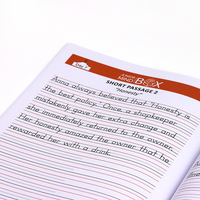 MIND BOX
SHORT PASSAGE 2
"Honesty"
Anna always believed that "Honesty is
the best policy." Once a shopkeeper
mistakenly gave her extra change and
she immediately returned to the owner.
Her honesty amazed the owner that he
rewarded her with a drink.